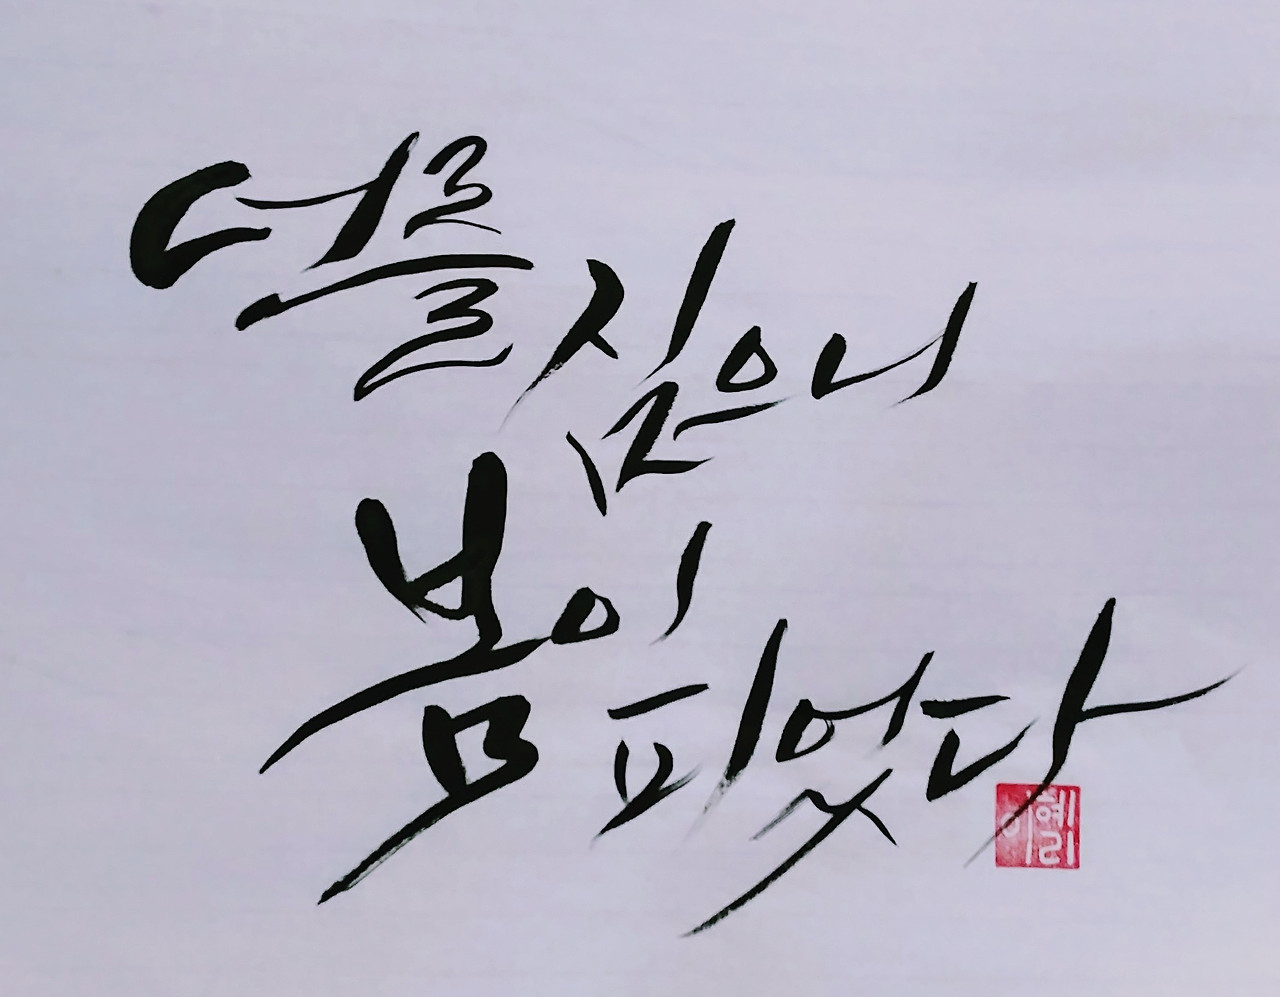 너를 심으니
봄이
피었다
이혜리